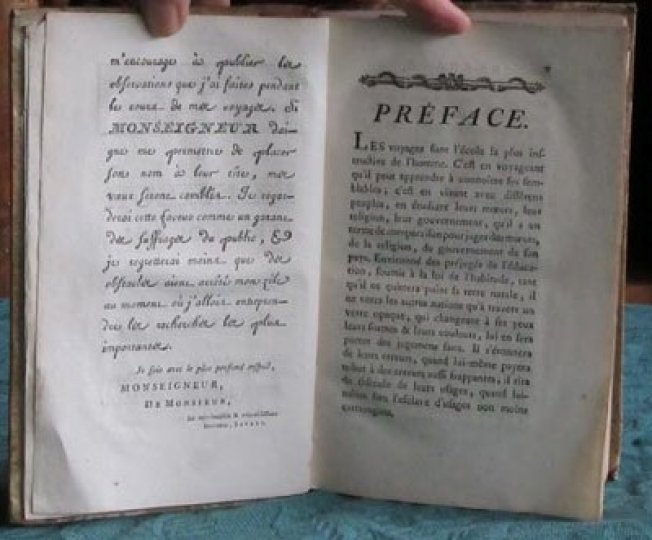 m'encourager à publier les
observations que j'ai faites pendant
le cours de mes voyages. Si
MONSEIGNEUR dai-
gne me permettre de placer
son nom à leur tête, mes
vœux seront comblés. Je regar-
derai cette faveur comme un garant
des suffrages du public, &
je regretterai moins que des
obstacles aient arrêté mon zèle
au moment où j'allois entrepren-
dre les recherches les plus
importantes.
Je suis avec le plus profond respect,
MONSEIGNEUR,
DE MONSIEUR,
Le très-humble & très-obéissant
Serviteur, SAVARY.
PRÉFACE.
LES voyages sont l'école la plus ins-
tructive de l'homme. C'est en voyageant
qu'il peut apprendre à connoître ses sem-
blables; c'est en vivant avec différens
peuples, en étudiant leurs mœurs, leur
religion, leur gouvernement, qu'il a un
terme de comparaison pour juger des mœurs,
de la religion, du gouvernement de son
pays. Environné des préjugés de l'éduca-
tion, soumis à la loi de l'habitude, tant
qu'il ne quittera point sa terre natale, il
ne verra les autres nations qu'à travers un
verre opaque, qui changeant à ses yeux
leurs formes & leurs couleurs, lui en fera
porter des jugemens faux. Il s'étonnera
de leurs erreurs, quand lui-même payera
tribut à des erreurs aussi frappantes; il rira
du ridicule de leurs usages, quand lui-
même sera l'esclave d'usages non moins